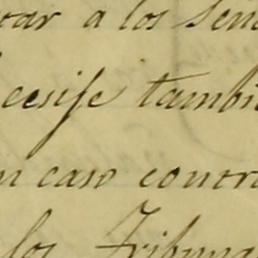 var a los Señ
cesise tambi
n caso contra
los Tribuna